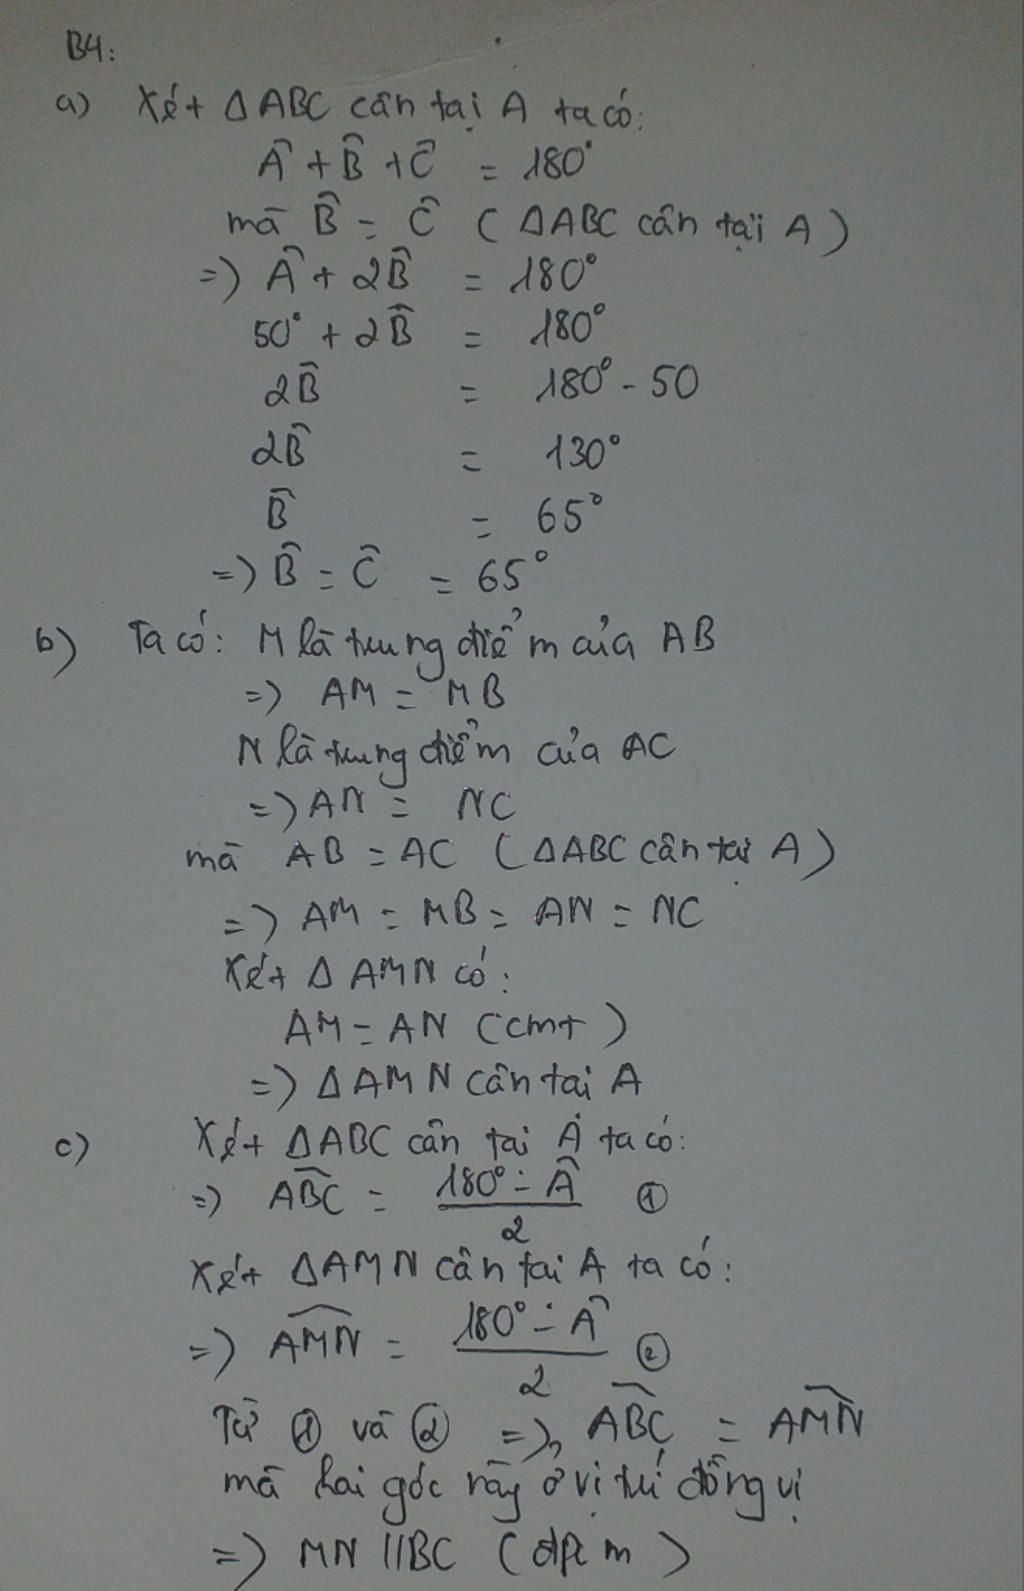 B4:
a) Xét ΔABC cân tại A ta có:
Â + B̂ + Ĉ = 180°
mà B̂ = Ĉ (ΔABC cân tại A)
=> Â + 2B̂ = 180°
50° + 2B̂ = 180°
2B̂ = 180° - 50
2B̂ = 130°
B̂ = 65°
=> B̂ = Ĉ = 65°
b) Ta có: M là trung điểm của AB
=> AM = MB
N là trung điểm của AC
=> AN = NC
mà AB = AC (ΔABC cân tại A)
=> AM = MB = AN = NC
Xét Δ AMN có:
AM = AN (cmt)
=> ΔAMN cân tai A
c) Xét ΔABC cân tai A ta có:
=> \widehat{ABC} = \frac{180° - Â}{2} ①
Xét ΔAMN cân tai A ta có:
=> \widehat{AMN} = \frac{180° - Â}{2} ②
Từ ① và ② => \widehat{ABC} = \widehat{AMN}
mà hai góc này ở vị trí đồng vị
=> MN // BC (đpcm)